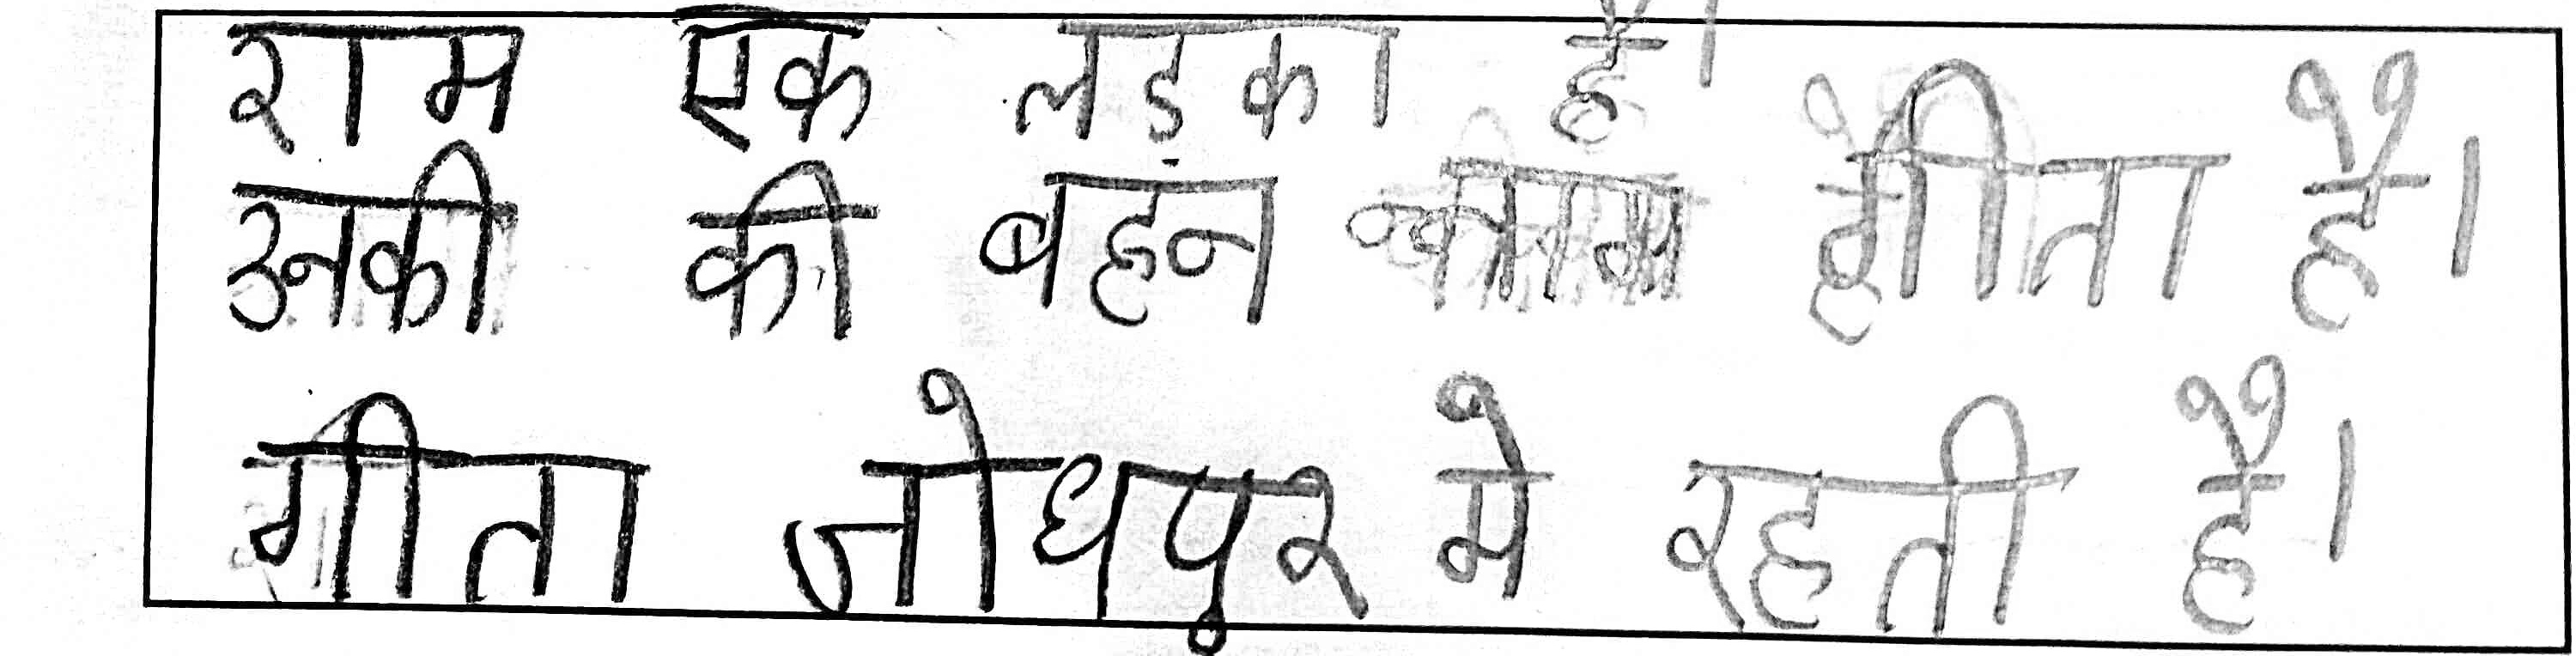 राम एक लड़का है।
उनकी की बहन गीता है।
गीता जोधपुर मे रहती है।